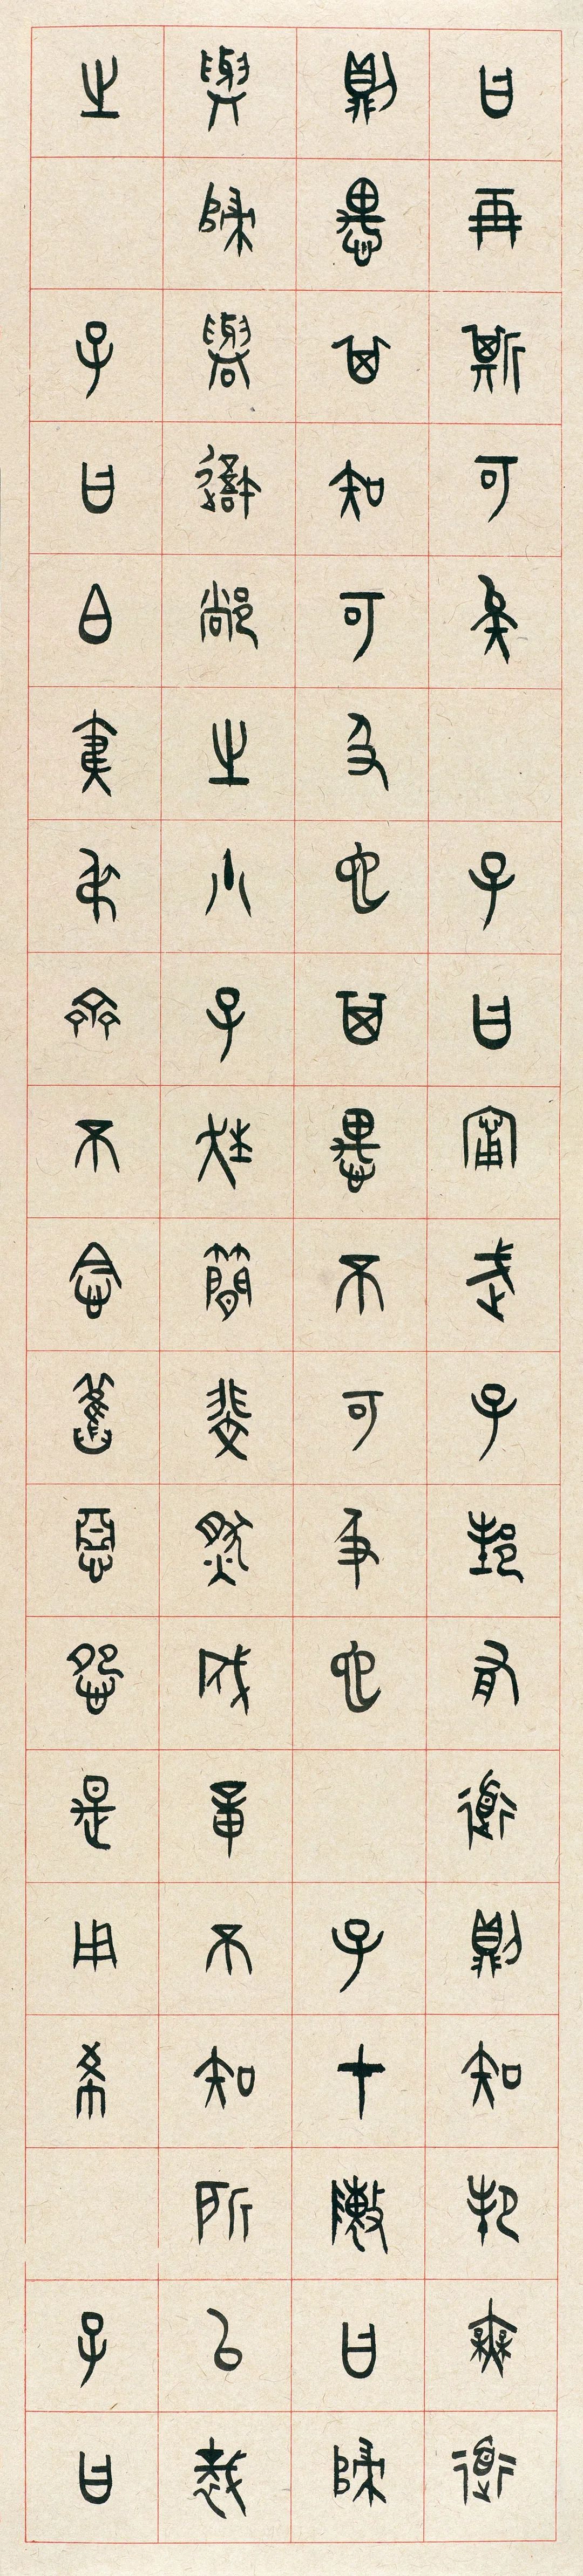 曰再斯可矣　子曰甯武子邦有道則知邦無道
則愚其知可及也其愚不可及也　子在陳曰歸
與歸與吾黨之小子狂簡斐然成章不知所以裁
之　子曰伯夷叔齊不念舊惡怨是用希　子曰